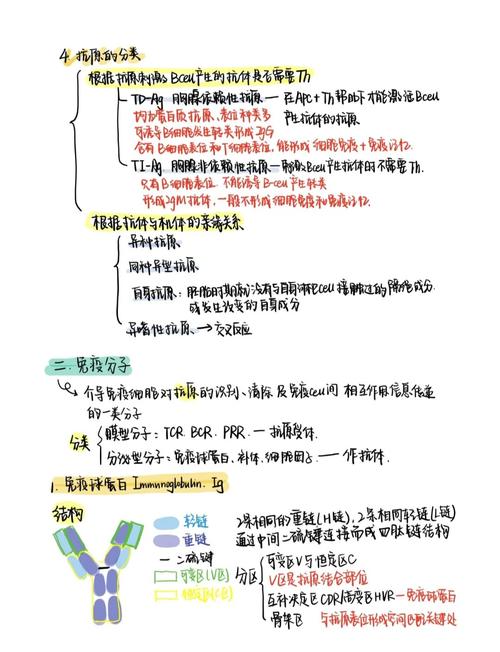 4. 抗原的分类
根据抗原刺激Bcell产生的抗体是否需要Th
TD-Ag 胸腺依赖性抗原 — 在APC+Th帮助下才能激活Bcell
产生抗体的抗原
均为蛋白质抗原、表位种类多
可诱导B细胞发生转类形成IgG
含有B细胞表位和T细胞表位,能形成细胞免疫+免疫记忆.
TI-Ag 胸腺非依赖性抗原 — 刺激Bcell产生抗体时不需要Th.
只有B细胞表位 不能诱导B-cell产生转类
形成IgM抗体,一般不形成细胞免疫和免疫记忆.
根据抗体与机体的亲缘关系
异种抗原
同种异型抗原
自身抗原:胚胎时期就没有与自身淋巴cell接触过的隐蔽成分
或发生改变的自身成分
异嗜性抗原 → 交叉反应
二.免疫分子
介导免疫细胞对抗原的识别、清除及免疫cell间相互作用信息传递
的一类分子
分类
膜型分子:TCR. BCR. PRR. — 抗原受体.
分泌型分子:免疫球蛋白.补体.细胞因子. — 作抗体.
1. 免疫球蛋白 Immunoglobulin. Ig
结构
轻链
重链
— 二硫键
可变区(V区)
恒定区(C区)
2条相同的重链(H链),2条相同轻链(L链)
通过中间二硫键连接而成四肽链结构
分区
可变区V与恒定区C
V区是抗原结合部位
互补决定区CDR/高变区HVR — 免疫球蛋白
骨架区
与抗原表位形成空间互补关键处